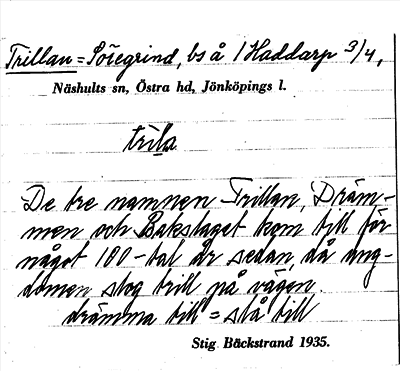 Trillan = Söregrind, bs å 1 Haddarp 3/4,
Näshults sn, Östra hd, Jönköpings l.
trila
De tre namnen Trillan, Dräm-
men och Bakslaget kom till för
något 100-tal år sedan, då ung-
domen slog trill på vägen.
drämma till = slå till
Stig Bäckstrand 1935.